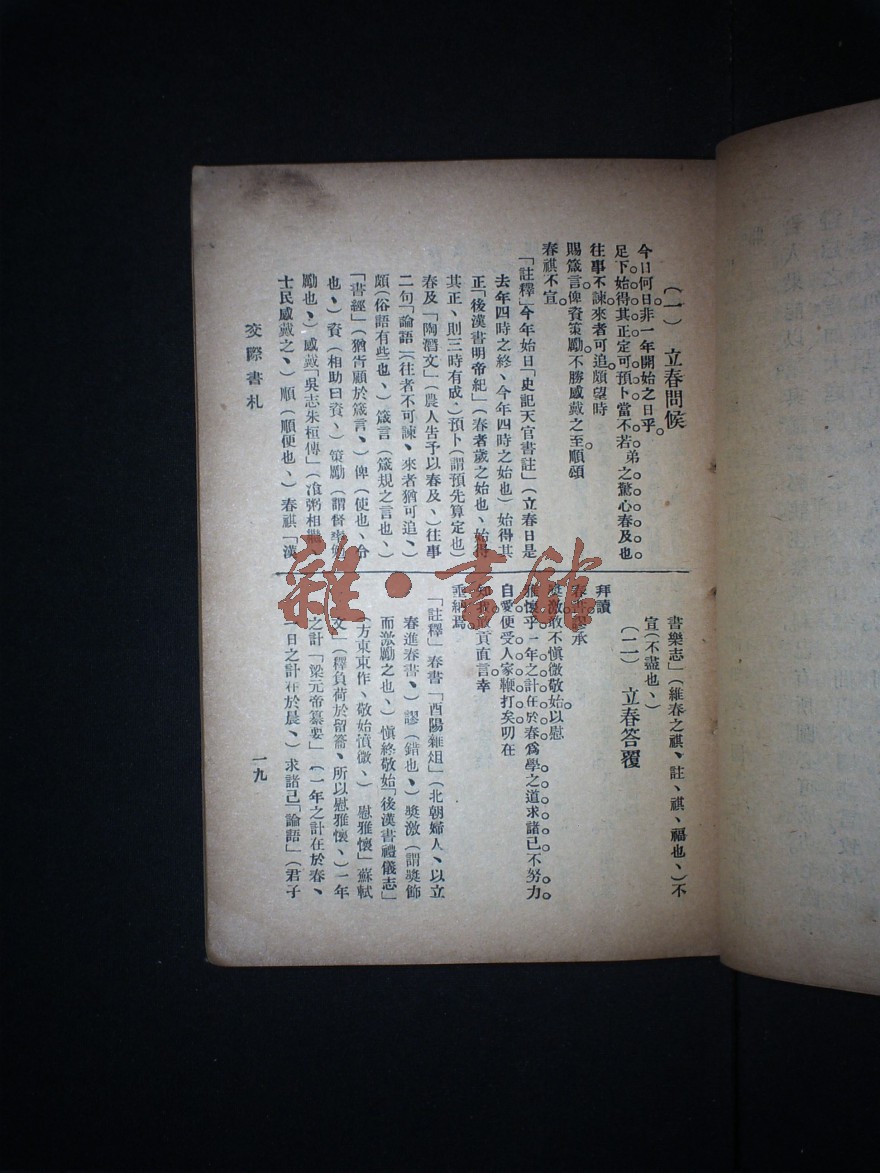 （一）　立春問候
今日何日非一年開始之日乎。
足下始得其正定可預卜當不若弟之驚心春及也
往事不諫來者可追頗望時
賜箴言俾資策勵不勝感戴之至順頌
春祺不宣
「註釋」今年始日「史記天官書註」（立春日是
去年四時之終、今年四時之始也）始得其
正「後漢書明帝紀」（春者歲之始也、始得
其正、則三時有成、）預卜（謂預先算定也）
春及「陶潛文」（農人告予以春及、）往事
二句「論語」（往者不可諫、來者猶可追、）
頗（俗語有些也、）箴言（箴規之言也、）
「書經」（猶胥顧於箴言、）俾（使也、令
也、）資（相助曰資、）策勵（謂督率勉
勵也、）感戴「吳志朱桓傳」（飡粥相繼、
士民感戴之、）順（順便也、）春祺「漢
書樂志」（維春之祺、註、祺、福也、）不
宣（不盡也、）
（二）　立春答覆
拜讀
春書謬承
獎激敢不愼微敬始以慰
雅懷乎一年之計在於春爲學之道求諸己不努力
自愛便受人家鞭打矣叨在
知我敢貢直言幸
垂納焉。
「註釋」春書「酉陽雜俎」（北朝婦人、以立
春進春書、）謬（錯也、）獎激（謂獎飾
而激勵之也、）愼終敬始「後漢書禮儀志」
（方東東作、敬始愼微、）慰雅懷」蘇軾
文」（釋負荷於留籥、所以慰雅懷、）一年
之計「梁元帝纂要」（一年之計在於春、
一日之計在於晨、）求諸己「論語」（君子
交際書札
一九
雜·書館